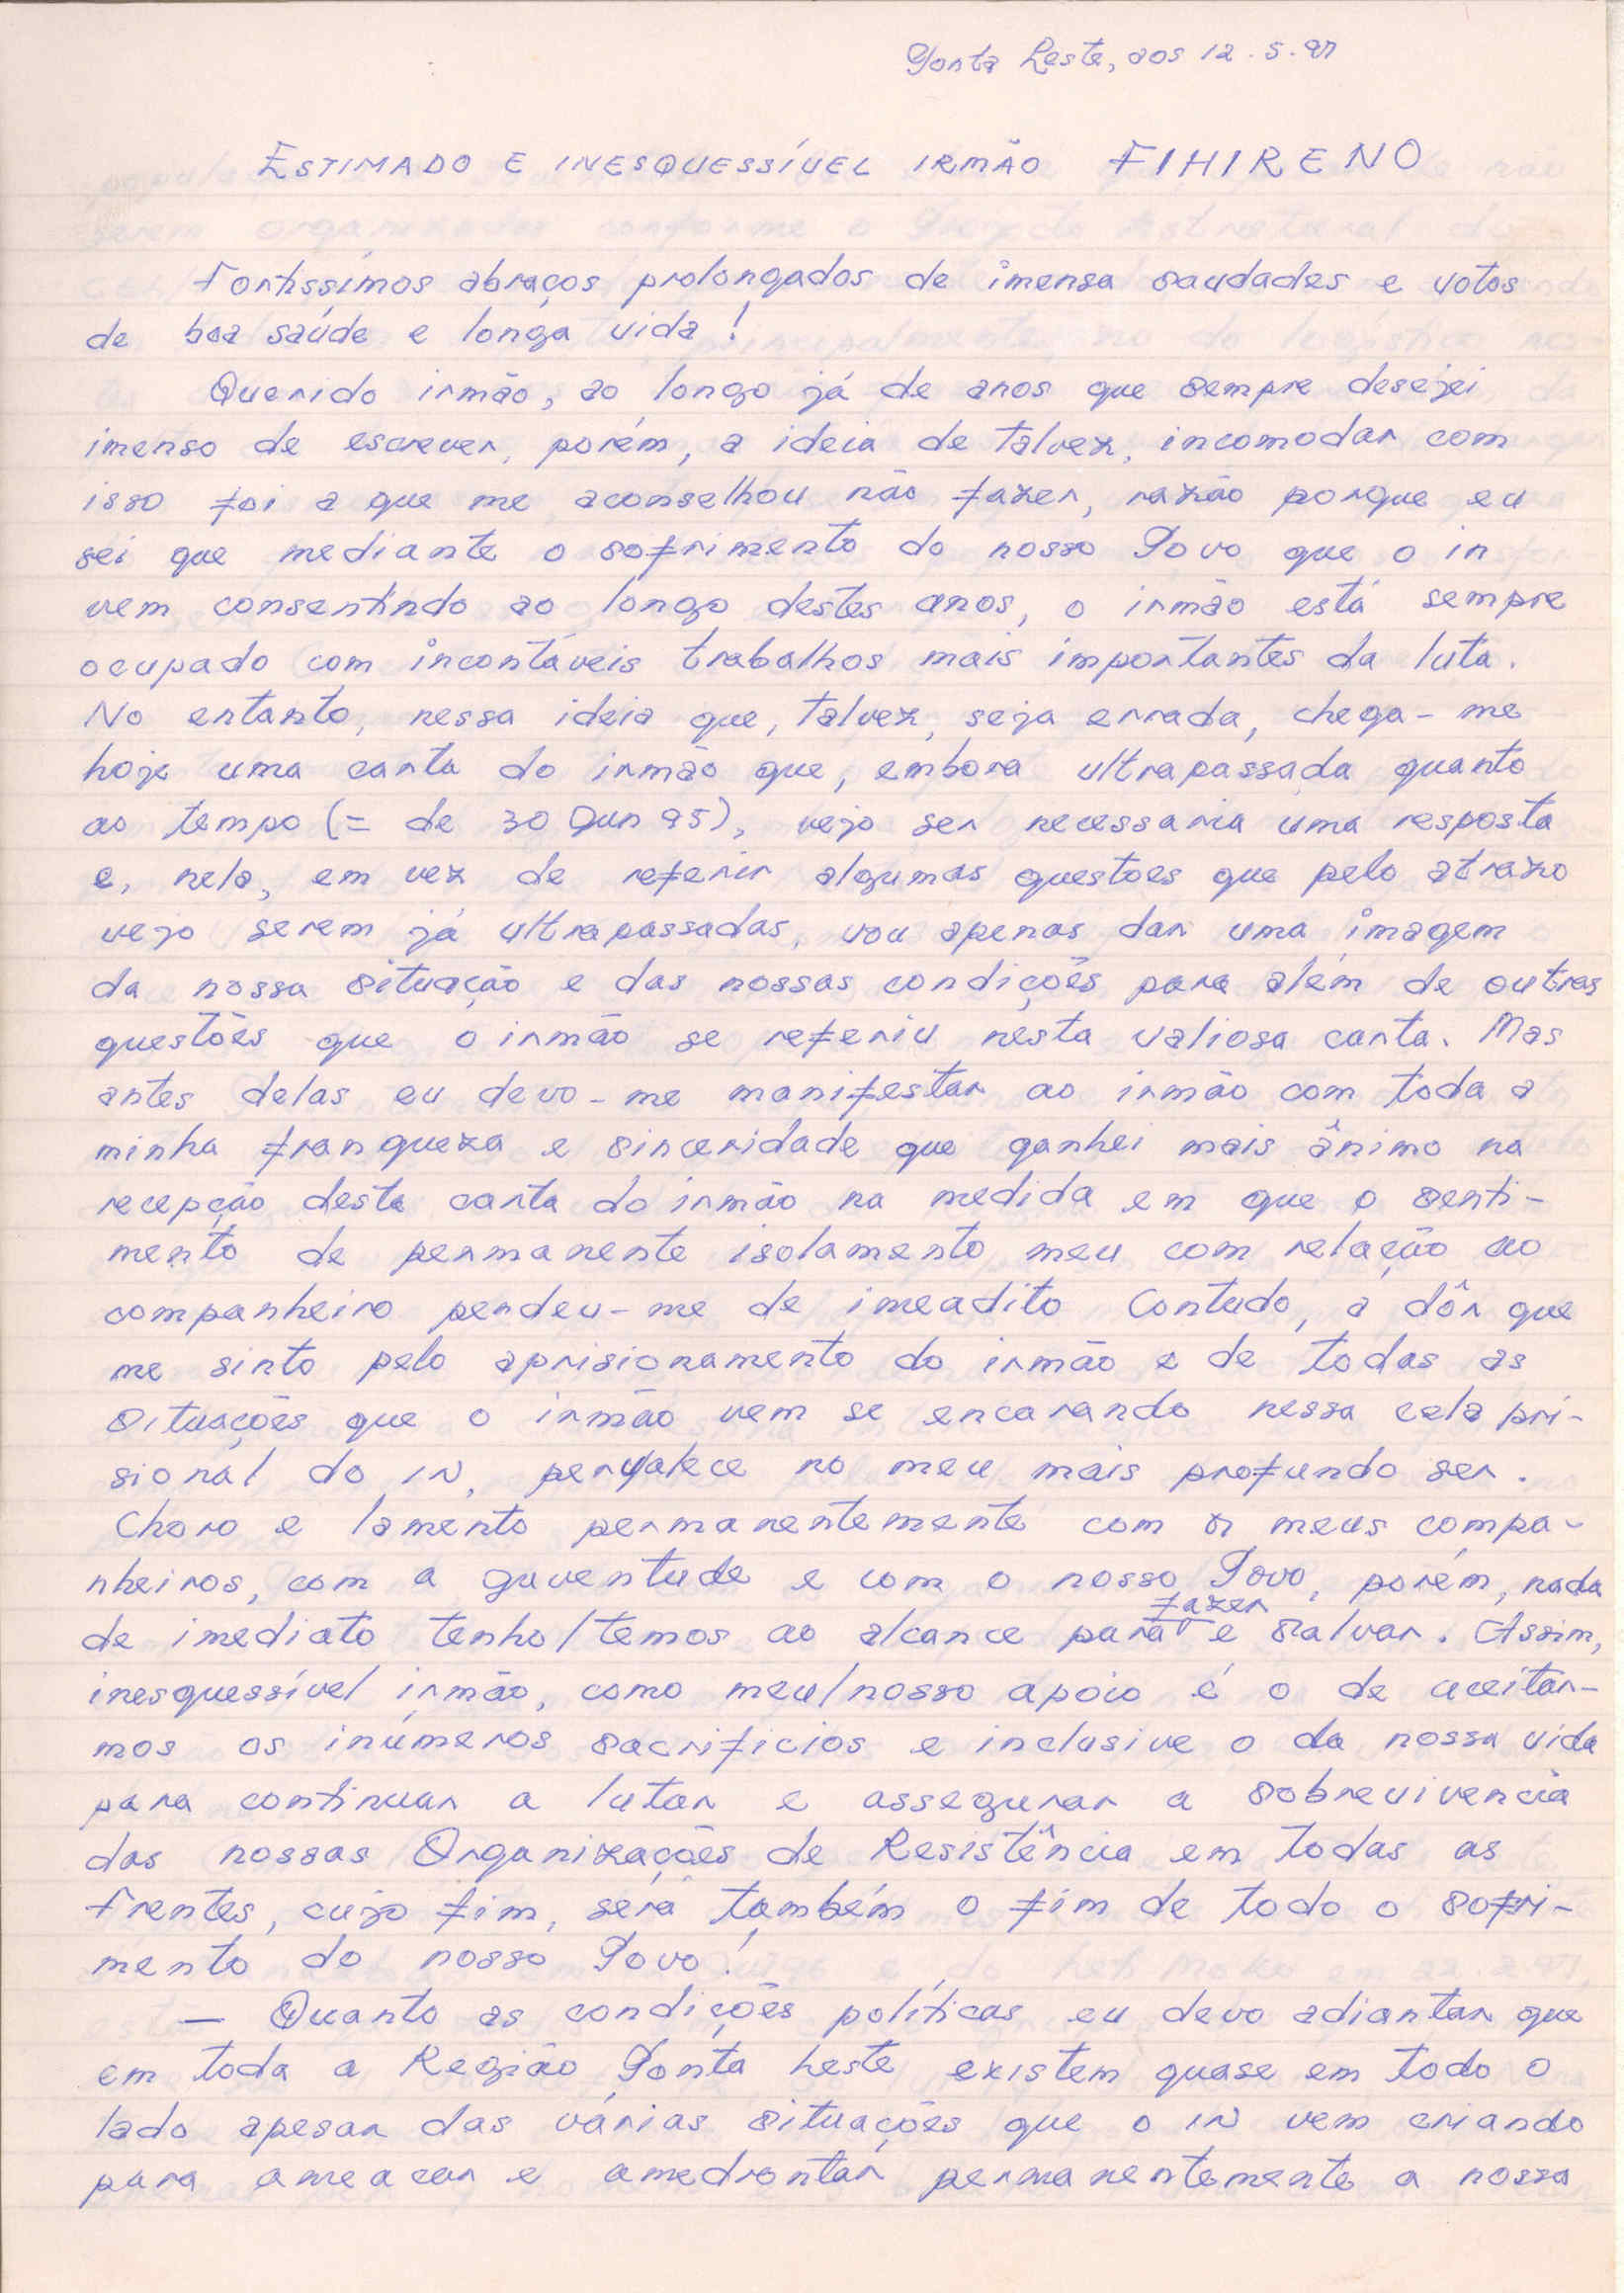 Ponta Leste, aos 12.5.97
ESTIMADO E INESQUESSÍVEL IRMÃO FIHIRENO
Fortissimos abraços prolongados de imensa saudades e votos
de boa saúde e longa vida!
Querido irmão, ao longo já de anos que sempre desejei
imenso de escrever, porém, a ideia de talvez, incomodar com
isso foi a que me aconselhou não fazer, razão porque eu
sei que mediante o sofrimento do nosso Povo que o in
vem consentindo ao longo destes anos, o irmão está sempre
ocupado com incontáveis trabalhos mais importantes da luta.
No entanto, nessa ideia que, talvez, seja errada, chega-me
hoje uma carta do irmão que, embora ultrapassada quanto
ao tempo (= de 30 Jun 95), vejo ser necessaria uma resposta
e, nela, em vez de referir algumas questoes que pelo atrazo
vejo serem já ultrapassadas, vou apenas dar uma imagem
da nossa situação e das nossas condições para além de outras
questões que o irmão se referiu nesta valiosa carta. Mas
antes delas eu devo-me manifestar ao irmão com toda a
minha franqueza e sinceridade que ganhei mais ânimo na
recepção desta carta do irmão na medida em que o senti-
mento de permanente isolamento meu com relação ao
companheiro perdeu-me de imeadito Contudo, a dôr que
me sinto pelo aprisionamento do irmão e de todas as
situações que o irmão vem se encarando nessa cela pri-
sional do IN, pervalece no meu mais profundo ser.
Choro e lamento permanentemente com os meus compa-
nheiros, com a juventude e com o nosso Povo, porém, nada
de imediato tenho/temos ao alcance para fazer e salvar. Assim,
inesquessível irmão, como meu/nosso apoio é o de aceitar-
mos os inúmeros sacrificios e inclusive o da nossa vida
para continuar a lutar e assegurar a sobrevivencia
das nossas Organizações de Resistência em todas as
frentes, cujo fim, será também o fim de todo o sofri-
mento do nosso Povo!
— Quanto as condições políticas eu devo adiantar que
em toda a Região Ponta Leste existem quase em todo o
lado apesar das várias situações que o IN vem criando
para ameaçar e amedrontar permanentemente a nossa